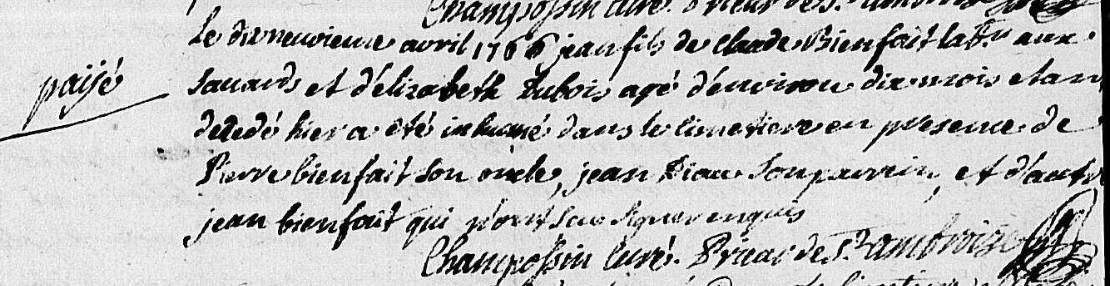 Champossin curé. Prieur de St. Ambroise
Le dixneuvieme avril 1766 jean fils de claude Bienfait labr. aux
payé
sauards et d'élizabeth Dubois agé d'environ dix mois etant
decedé hier a été inhumé dans le cimetiere en presence de
Pierre bienfait son oncle, jean son parrein, et d'autre
jean bienfait qui n'ont sceu signer enquis
Champossin Curé. Prieur de St. ambroise